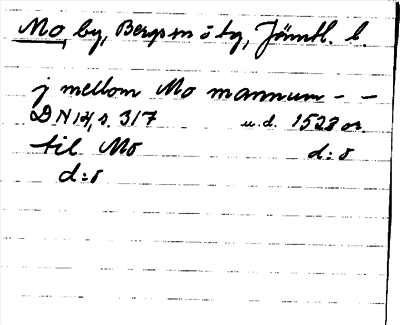 Mo, by, Bergs sn o tg, Jämtl. l.
j mellom Mo mannum - -
DN 14, s. 317 u.d. 1528 or.
til Mo d:o
d:o